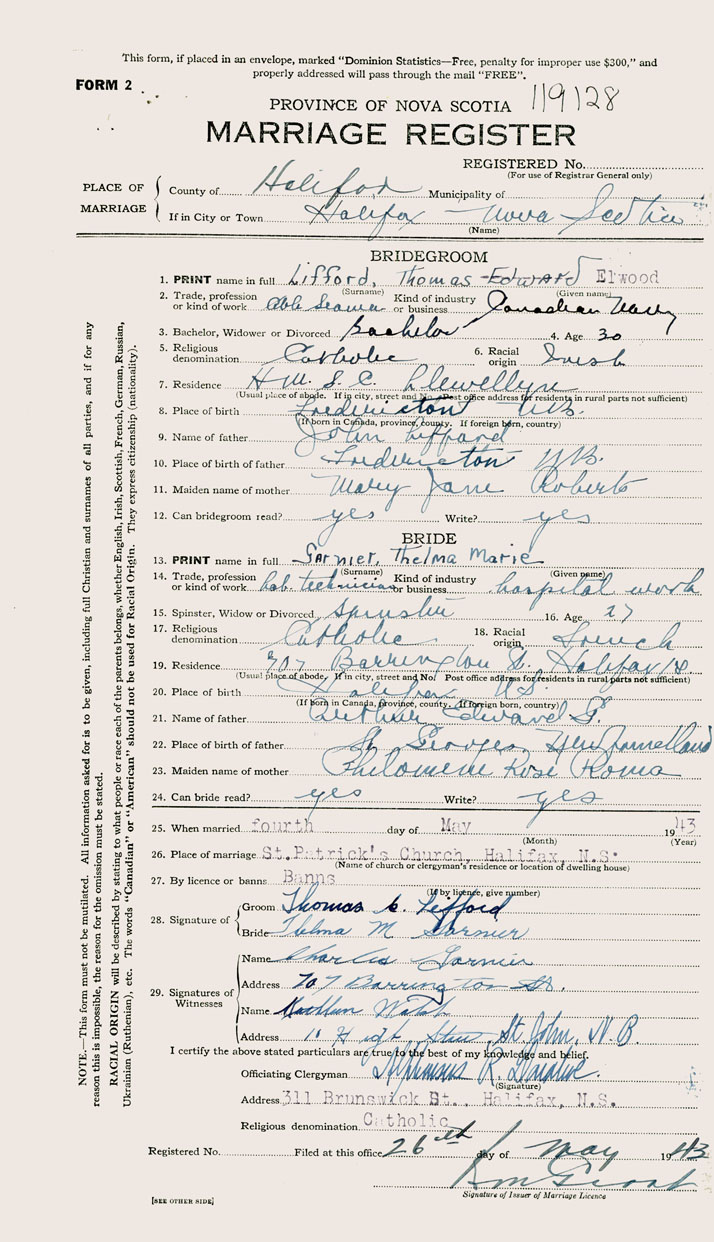 This form, if placed in an envelope, marked "Dominion Statistics—Free, penalty for improper use $300," and
properly addressed will pass through the mail "FREE".
FORM 2
PROVINCE OF NOVA SCOTIA 119128
MARRIAGE REGISTER
REGISTERED No.
(For use of Registrar General only)
PLACE OF MARRIAGE
County of Halifax Municipality of
If in City or Town Halifax Nova Scotia
(Name)
BRIDEGROOM
1. PRINT name in full Lifford, Thomas Edward Elwood
(Surname) (Given name)
2. Trade, profession or kind of work Able Seaman Kind of industry or business Canadian Navy
3. Bachelor, Widower or Divorced Bachelor 4. Age 30
5. Religious denomination Catholic 6. Racial origin Irish
7. Residence H.M.S.C. Llewellyn
(Usual place of abode. If in city, street and No. Post office address for residents in rural parts not sufficient)
8. Place of birth Fredericton N.B.
(If born in Canada, province, county. If foreign born, country)
9. Name of father John Lifford
10. Place of birth of father Fredericton N.B.
11. Maiden name of mother Mary Jane Roberts
12. Can bridegroom read? yes Write? yes
BRIDE
13. PRINT name in full Garnier, Thelma Marie
(Surname) (Given name)
14. Trade, profession or kind of work lab. technician Kind of industry or business hospital work
15. Spinster, Widow or Divorced Spinster 16. Age 27
17. Religious denomination Catholic 18. Racial origin French
19. Residence 707 Barrington St. Halifax
(Usual place of abode. If in city, street and No. Post office address for residents in rural parts not sufficient)
20. Place of birth Halifax N.S.
(If born in Canada, province, county. If foreign born, country)
21. Name of father Arthur Edward G.
22. Place of birth of father St Georges, Newfoundland
23. Maiden name of mother Philomene Rose Roma
24. Can bride read? yes Write? yes
25. When married fourth day of May 1943
(Month) (Year)
26. Place of marriage St.Patrick's Church, Halifax, N.S.
(Name of church or clergyman's residence or location of dwelling house)
27. By licence or banns Banns
(If by licence, give number)
28. Signature of
Groom Thomas E. Lifford
Bride Thelma M Garnier
29. Signatures of Witnesses
Name Charles Garnier
Address 707 Barrington St.
Name Walsh
Address St. John, N.B.
I certify the above stated particulars are true to the best of my knowledge and belief.
Officiating Clergyman Alphonsus R.
(Signature)
Address 311 Brunswick St., Halifax, N.S.
Religious denomination Catholic
Registered No. Filed at this office 26th day of May 1943
Signature of Issuer of Marriage Licence
[SEE OTHER SIDE]
NOTE.—This form must not be mutilated. All information asked for is to be given, including full Christian and surnames of all parties, and if for any
reason this is impossible, the reason for the omission must be stated.
RACIAL ORIGIN will be described by stating to what people or race each of the parents belongs, whether English, Irish, Scottish, French, German, Russian,
Ukrainian (Ruthenian), etc. The words "Canadian" or "American" should not be used for Racial Origin. They express citizenship (nationality).